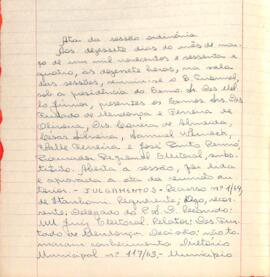 Ata da sessão ordinária
Aos dezessete dias do mês de mar-
ço de um mil novecentos e sessenta e
quatro, às dezenove horas, na sala
das sessões, reuniu-se o E. Tribunal,
sob a presidência do Exmo. Sr. Des.
presentes os Exmos. Srs. Des.
Furtado de Mendonça e Ferreira de
Oliveira, Drs. Corrêa de Almeida,
César Silveira,
Valle Ferreira e José
Procurador Regional Eleitoral, subs-
tituto. Aberta a sessão, foi lida
e aprovada a ata da reunião an-
terior. - JULGAMENTOS - Recurso nº 1/64,
de Itanhomi. Requerente;
rente; Delegado do P.S.D. Recorrido:
MM. Juiz Eleitoral. Relator: Des. Fur-
tado de Mendonça. Decisão: não to-
maram conhecimento.
Municipal nº 117/63 - Município